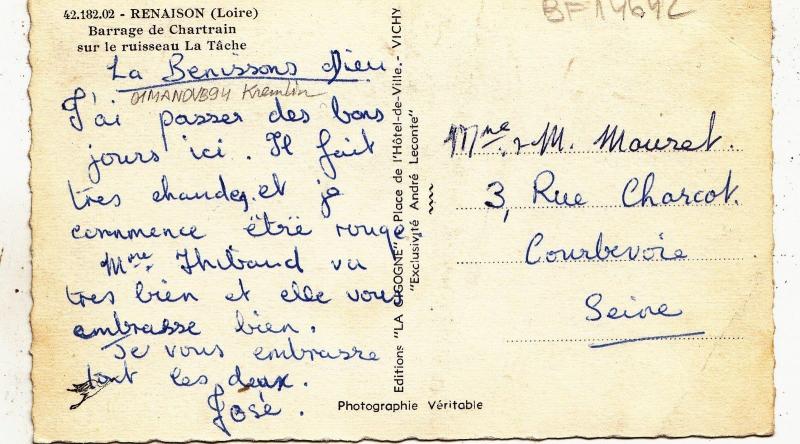 42.182.02 - RENAISON (Loire)
Barrage de Chartrain
sur le ruisseau La Tâche
La Benissons Dieu
J'ai passer des bons
jours ici. Il fait
tres chande, et je
commence être rouge.
Mme. Thibaud va
tres bien et elle vous
embrasse bien.
Je vous embrasse
tout les deux.
José.
Editions "LA CIGOGNE" - Place de l'Hôtel-de-Ville - VICHY
"Exclusivité André Leconte"
Photographie Véritable
BF14642
Mme. & M. Mouret.
3, Rue Charcot.
Courbevoie
Seine